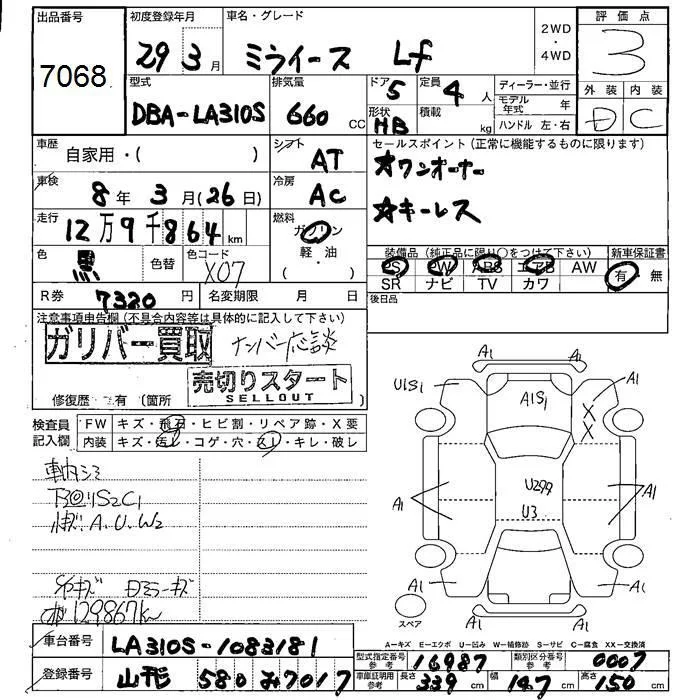 出品番号
7068
初度登録年月
29 3月
車名・グレード
ミライース Lf
2WD
・
4WD
評価点
3
外装 内装
D C
型式
DBA-LA310S
排気量
660 CC
ドア 5
形状 HB
定員 4人
積載 kg
ディーラー・並行
モデル年式 年
ハンドル 左・右
車歴
自家用・( )
シフト
AT
セールスポイント(正常に機能するものに限ります)
☆ワンオーナー
☆キーレス
車検
8年 3月(26日)
冷房
AC
走行
12万9千864km
燃料
ガソリン
・
軽油
( )
色
黒
色替
色コード
X07
装備品(純正品に限り○をつけて下さい)
新車保証書
PS PW ABS エアB AW
SR ナビ TV カワ
有・無
R券 7320円
名変期限 月 日
後日品
注意事項申告欄(不具合内容等は具体的に記入して下さい)
ガリバー買取
ナンバー応談
売切りスタート
SELLOUT
修復歴 有(箇所 )
検査員記入欄
FW キズ・飛石・ヒビ割・リペア跡・X要
内装 キズ・汚レ・コゲ・穴・スレ・キレ・破レ
車内シミ
下回りS2C1
A.U.W2
129867km
A1 A1
U1S1
A1S1
A1
X
X
A1
U299
U3
A1
A1 A1
A1 A1
スペア
A-キズ E-エクボ U-凹み W-補修跡 S-サビ C-腐食 XX-交換済
車台番号
LA310S-1083181
型式指定番号 参考 16987
類別区分番号 参考 0007
登録番号
山形 580 み7017
車庫証明用 参考
長さ 339cm 幅 147cm 高さ 150cm